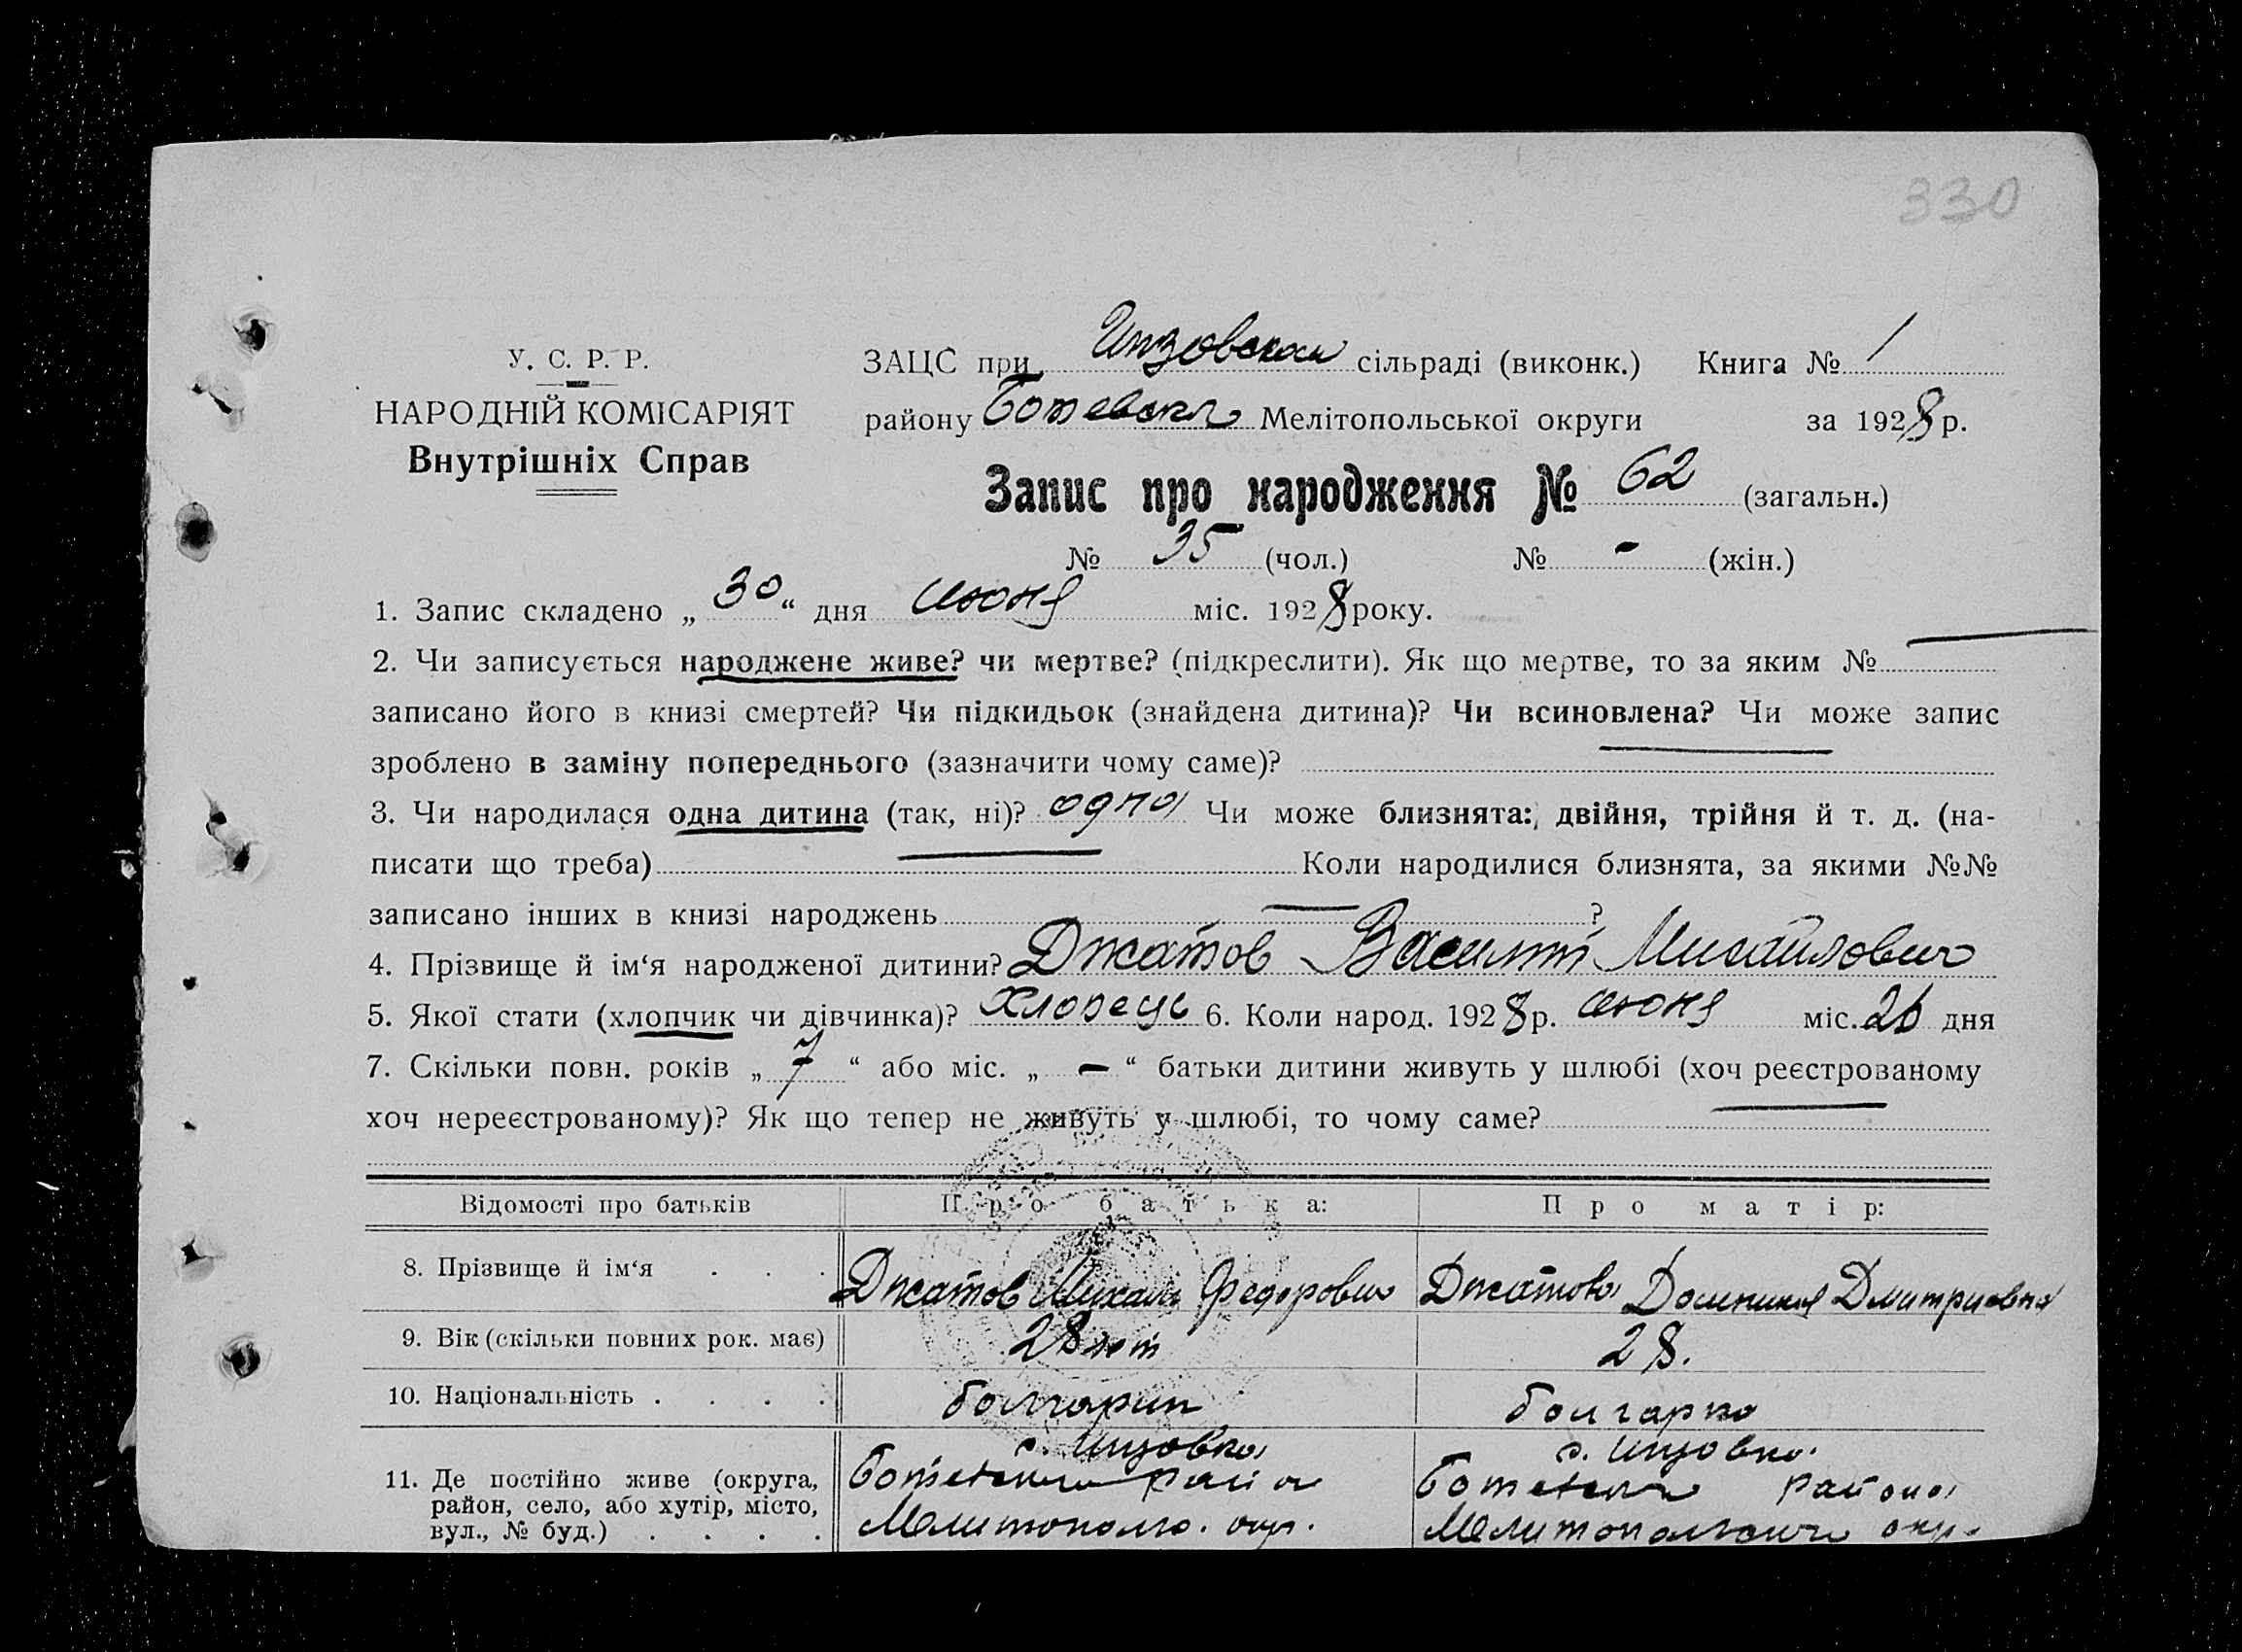 330
У. С. Р. Р.
НАРОДНІЙ КОМІСАРІЯТ
Внутрішніх Справ
ЗАЦС при Инзовской сільраді (виконк.) Книга № 1
району Ботевск. Мелітопольської округи за 1928 р.
Запис про народження № 62 (загальн.)
№ 35 (чол.) № - (жін.)
1. Запис складено „30“ дня июня міс. 1928 року.
2. Чи записується народжене живе? чи мертве? (підкреслити). Як що мертве, то за яким № —
записано його в книзі смертей? Чи підкидьок (знайдена дитина)? Чи всиновлена? Чи може запис
зроблено в заміну попереднього (зазначити чому саме)? —
3. Чи народилася одна дитина (так, ні)? одна Чи може близнята: двійня, трійня й т. д. (на-
писати що треба) — Коли народилися близнята, за якими №№
записано інших в книзі народжень — ?
4. Прізвище й ім‘я народженої дитини? Джатов Василий Михайлович
5. Якої стати (хлопчик чи дівчинка)? хлопець 6. Коли народ. 1928 р. июня міс. 26 дня
7. Скільки повн. років „7“ або міс. „—“ батьки дитини живуть у шлюбі (хоч реєстрованому
хоч нереєстрованому)? Як що тепер не живуть у шлюбі, то чому саме? —
Відомості про батьків Про батька: Про матір:
8. Прізвище й ім‘я . . . Джатов Михаил Федорович Джатова Домникия Дмитриевна
9. Вік (скільки повних рок. має) 28 лет 28.
10. Національність . . . . болгарин болгарка
с. Инзовка с. Инзовка
11. Де постійно живе (округа, Ботевского района Ботевского района
район, село, або хутір, місто,
вул., № буд.) . . . . Мелитополь. окр. Мелитопольского окр.